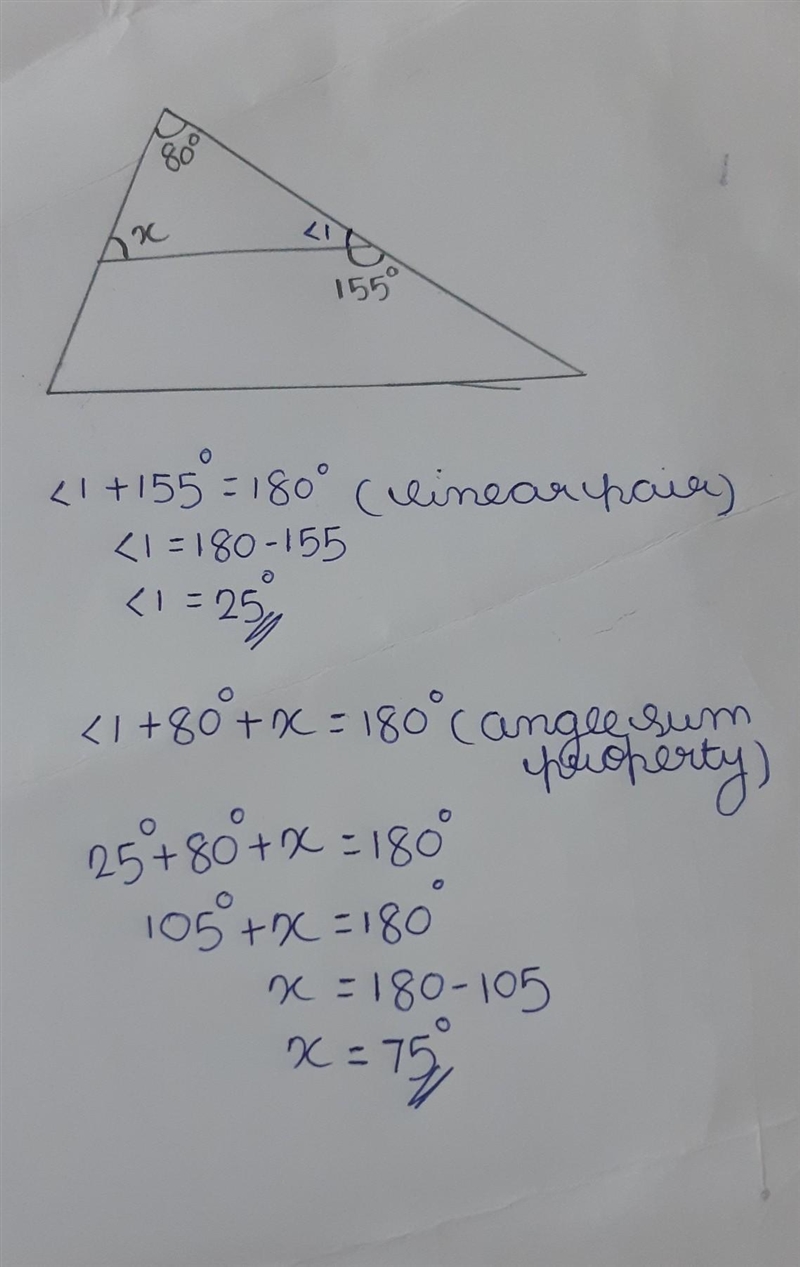 80°
x
<1
155°
<1 + 155° = 180° (linear pair)
<1 = 180 - 155
<1 = 25°
<1 + 80° + x = 180° (angle sum
property)
25° + 80° + x = 180°
105° + x = 180°
x = 180 - 105
x = 75°